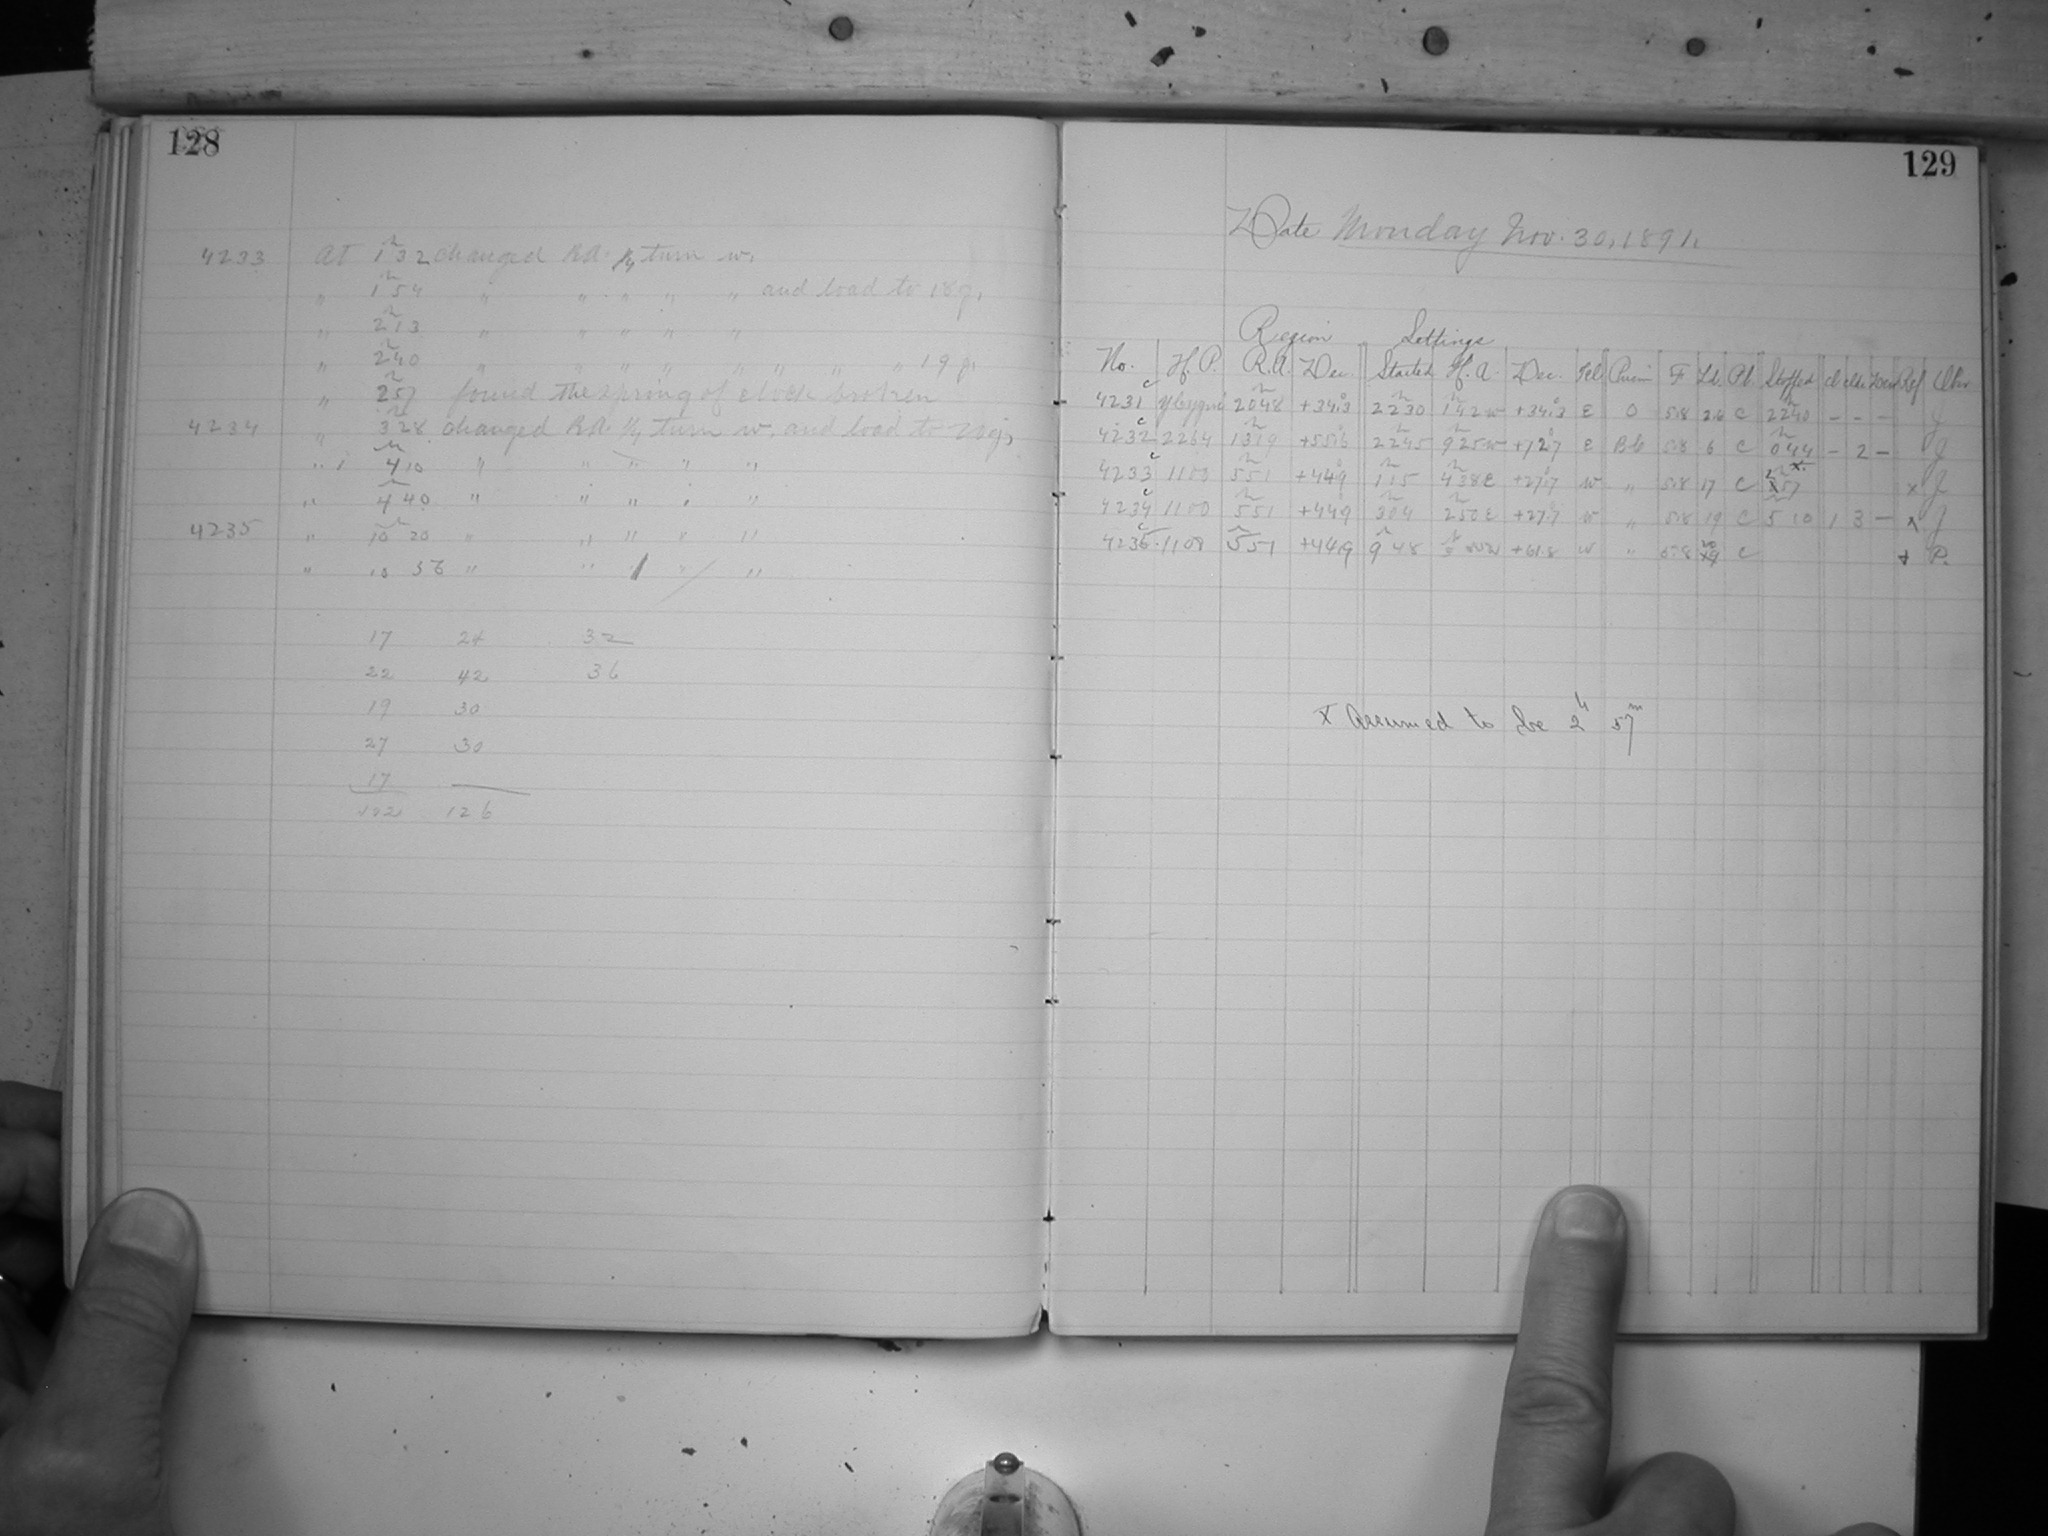 128
4233 At 1h 32 changed R.A. 1/4 turn w.
" 1h 54 " " " " " and load to 18g.
" 2h 13 " " " " "
" 2h 40 " " " " " " " " 19g.
" 2h 57 found the spring of clock broken
4234 " 3h 28 changed R.A. 1/4 turn w. and load to 20g.
" 4h 10 " " " " "
" 4h 40 " " " " "
4235 " 10h 20 " " " " "
" 10 56 " " " "
17 24 32
22 42 36
19 30
27 30
17
102 126
129
Date Monday Nov. 30, 1891.
Region Settings
No. H.P. R.A. Dec. Started H.A. Dec. F Ld. Pl. Stopped Ref Obs
4231 c 20h48 +34°.3 22h30 1h42w +34°.3 E O 2.6 C 22h40 - - - J
4232 2264 13h19 +55°.6 22h45 9h25w E 6 C 0h44 - 2 - J
4233 c 1100 5h51 +44°.9 1h15 4h38E W " 17 C 57 x J
4234 c 1100 5h51 +44°.9 3h04 2h50E W " 19 C 5h10 1 3 - J
4235 c 5h51 +44.9 9h48 +61.8 W " C P.
x Assumed to be 2h 57m